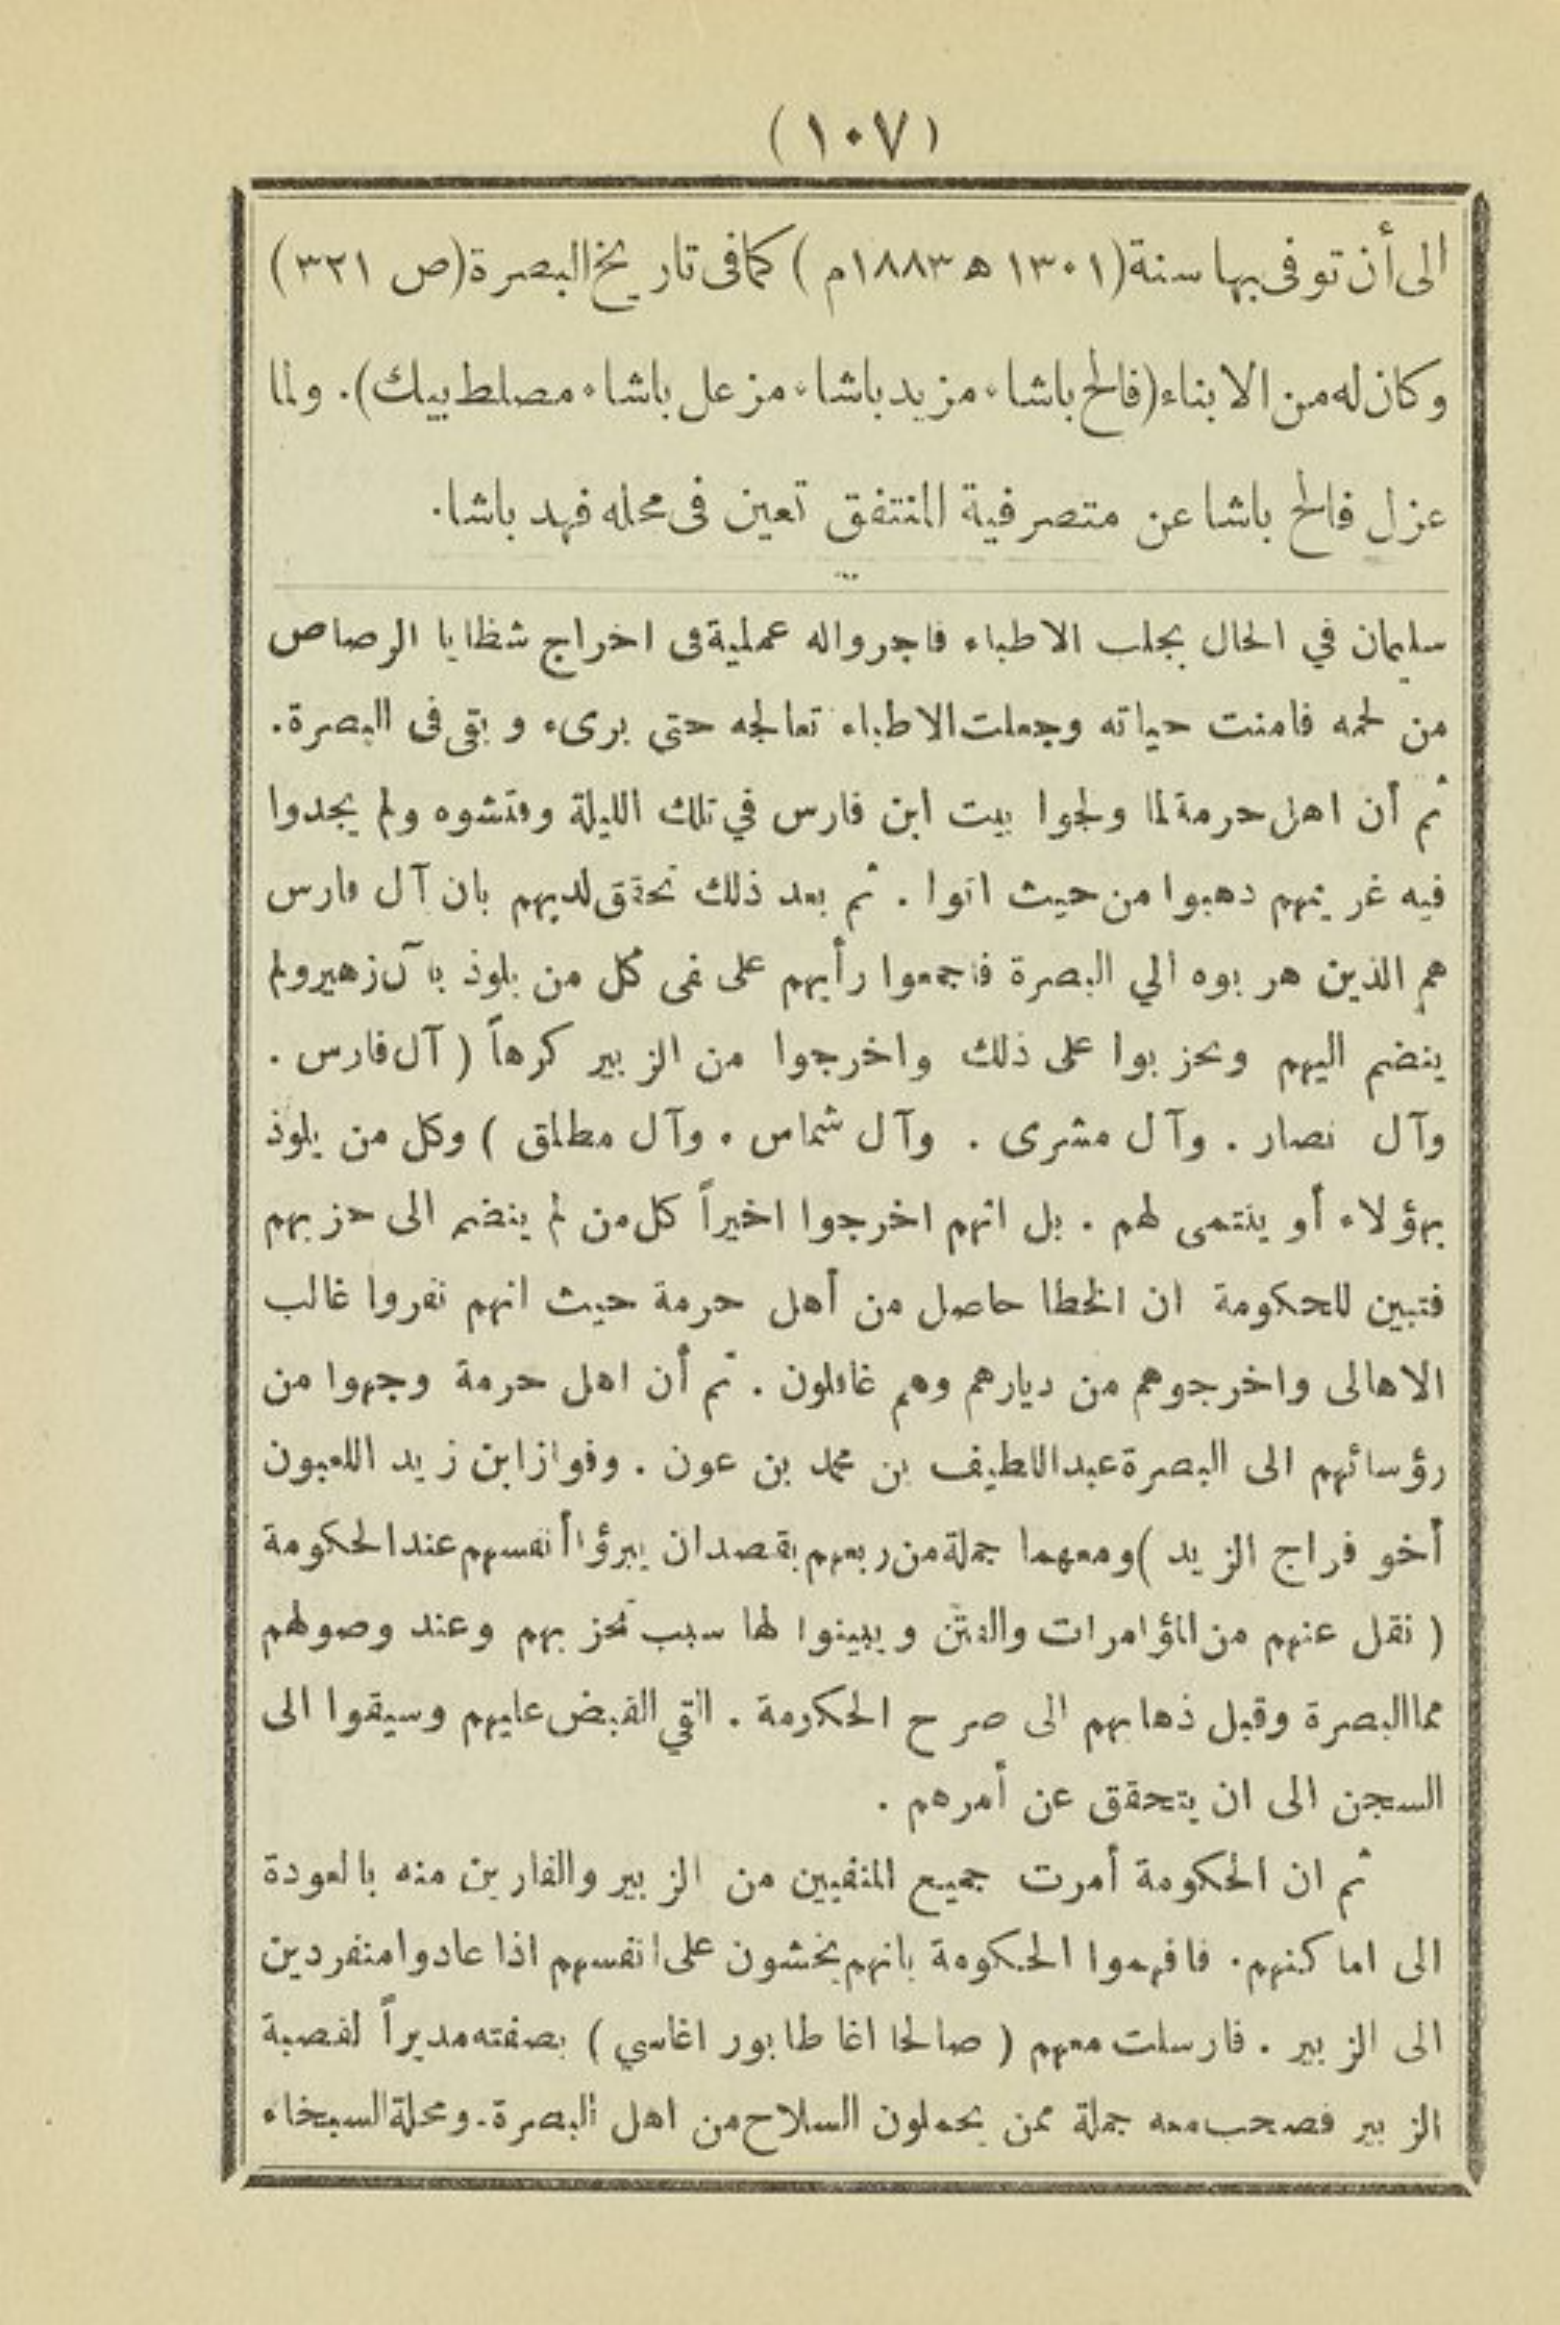 (١٠٧)
الى أن توفى بها سنة (١٣٠١ ﻫ ١٨٨٣م) كما فى تاريخ البصرة (ص ٣٢١)
وكان له من الابناء (فالح باشا، مزيد باشا، مزعل باشا، مصلط بيك). ولما
عزل فالح باشا عن متصرفية المنتفق تعين فى محله فهد باشا.
سليمان في الحال بجلب الاطباء فاجروا له عملية فى اخراج شظايا الرصاص
من لحمه فامنت حياته وجعلت الاطباء تعالجه حتى برىء و بقى فى البصرة.
ثم أن اهل حرمة لما ولجوا بيت ابن فارس في تلك الليلة وفتشوه ولم يجدوا
فيه غريمهم دهبوا من حيث اتوا . ثم بعد ذلك تحقق لديهم بان آل فارس
هم الذين هربوه الي البصرة فاجمعوا رأيهم على نفى كل من يلوذ بآل زهير ولم
ينضم اليهم وتحزبوا على ذلك واخرجوا من الزبير كرهاً ( آل فارس .
وآل نصار . وآل مشرى . وآل شماس . وآل مطلق ) وكل من يلوذ
بهؤلاء أو ينتمى لهم . بل انهم اخرجوا اخيراً كل من لم ينضم الى حزبهم
فتبين للحكومة ان الخطا حاصل من أهل حرمة حيث انهم نفروا غالب
الاهالى واخرجوهم من ديارهم وهم غافلون . ثم أن اهل حرمة وجهوا من
رؤسائهم الى البصرة عبد اللطيف بن محمد بن عون . وفواز ابن زيد اللعبون
أخو فراج الزيد ) ومعهما جملة من ربعهم بقصد ان يبرؤا أنفسهم عند الحكومة
( نقل عنهم من المؤامرات والفتن ويبينوا لها سبب تحزبهم وعند وصولهم
مما البصرة وقبل ذهابهم الى صرح الحكومة . القي القبض عليهم وسيقوا الى
السجن الى ان يتحقق عن أمرهم .
ثم ان الحكومة أمرت جميع المنفيين من الزبير والفارين منه بالعودة
الى اماكنهم. فافهموا الحكومة بانهم يخشون على انفسهم اذا عادوا منفردين
الى الزبير . فارسلت معهم ( صالحا اغا طابور اغاسي ) بصفته مديراً لقصبة
الزبير فصحب معه جملة ممن يحملون السلاح من اهل البصرة. ومحلة السبخاء